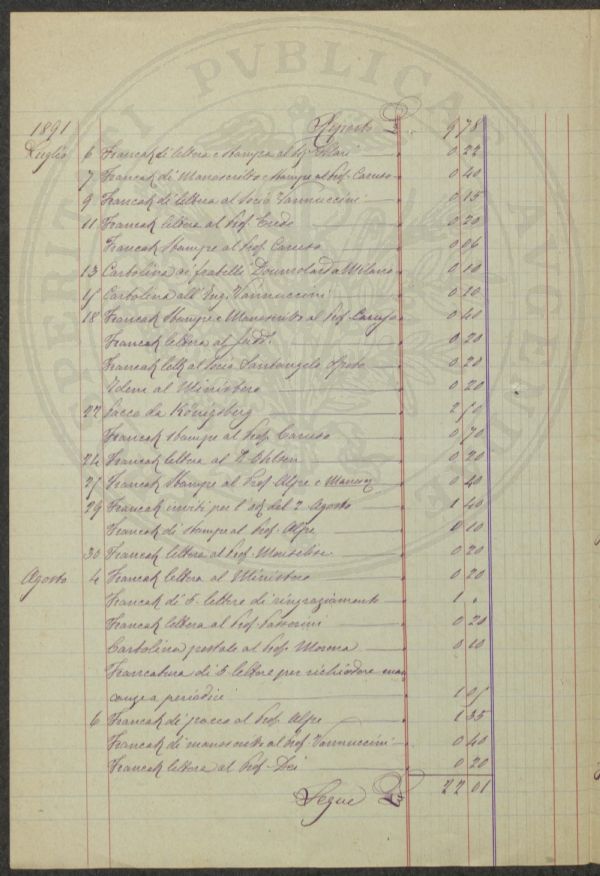 1891 Reporto £. 9 78
Luglio 6 Francat di lettera e stampa al 0 22
7 Francat di Manoscritto e stampe al Prof. Caruso 0 40
9 Francat di lettera al Socio Vannuccini 0 15
11 Francat lettera al Prof. 0 20
Francat stampe al Prof Caruso 0 06
13 Cartolina ai fratelli Doumolard a Milano 0 10
15 Cartolina all'Ing. Vannuccini 0 10
18 Francat stampe e Manoscritto al Prof. Caruso 0 40
Francat lettera al 0 20
Francat lett. al Socio Santangelo Spoto 0 20
Idem al Ministero 0 20
22 Pacco da Königsberg 2 50
Francat stampe al Prof. Caruso 0 70
24 Francat lettera al Ohlsen 0 20
27 Francat stampe al Prof Alpe e 0 40
29 Francat inviti per l'ad. del 2 Agosto 1 40
Francat di stampe al Prof. Alpe 0 10
30 Francat lettera al Prof. 0 20
Agosto 4 Francat lettera al Ministero 0 20
Francat di 5 lettere di ringraziamento 1 .
Francat lettera al Prof. Passerini 0 20
Cartolina postale al Prof. Morena 0 10
Francatura di 5 lettere per richiedere man
canze a periodici 1 05
6 Francat di pacco al Prof. Alpe 1 35
Francat di manoscritto al Prof. Vannuccini 0 40
Francat lettera al Prof. Dei 0 20
Segue £ 22 01